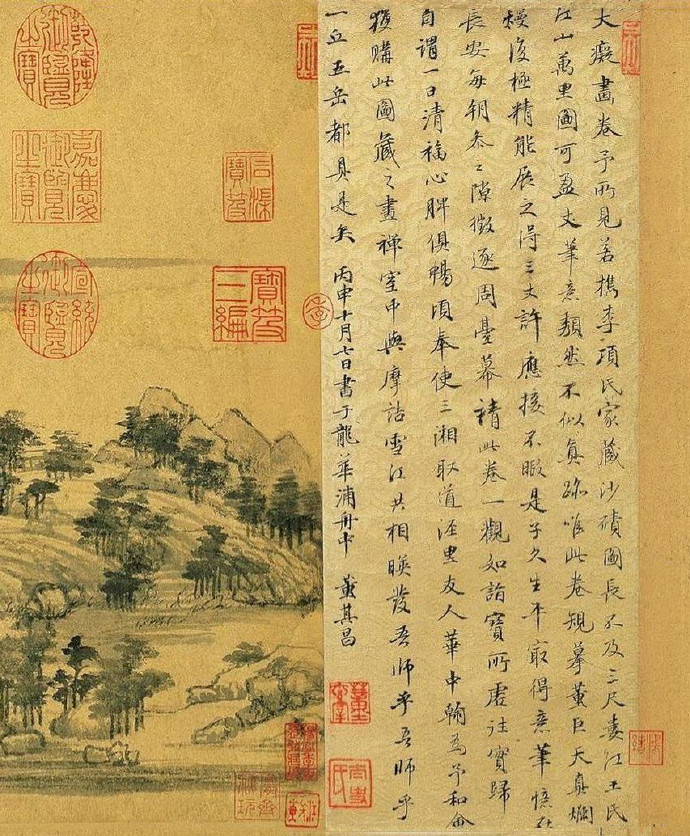 大癡畫卷予所見若檇李項氏家藏沙磧圖長不及三尺婁江王氏
江山萬里圖可盈丈筆意頹然不似真跡唯此卷規摹董巨天真爛
熳復極精能展之得三丈許應接不暇是子久生平冣得意筆憶在
長安每朝參之隙徵逐周臺幕請此卷一觀如詣寶所虛往實歸
自謂一日清福心脾俱暢頃奉使三湘取道涇里友人華中翰為予和會
獲購此圖藏之畫禪室中與摩詰雪江共相映發吾師乎吾師乎
一丘五岳都具是矣丙申十月七日書于龍華浦舟中董其昌
石渠寶笈
寶笈三編
乾隆御覽之寶
嘉慶御覽之寶
宣統御覽之寶